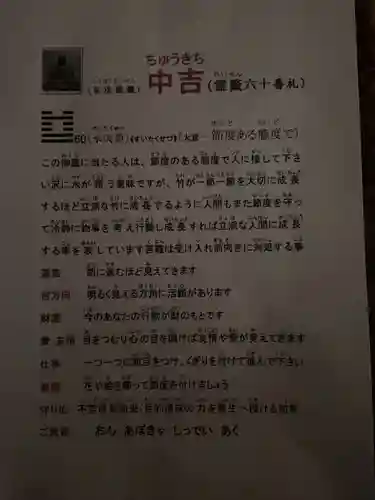 ちゅうきち
中吉
(霊籤六十番札)
60(水沢節)(すいたくせつ)(大意…節度ある態度で)
この御籤に当たる人は、節度のある態度で人に接して下さ
い沢に水が 意味ですが、竹が一節一節を大切に成長
するほど立派な竹に成長でるように人間もまた節度を守っ
て冷静に物事を考え行動し成長すれば立派な人間に成長
する事を表しています苦難は受け入れ前向きに対処する事
前に進むほど見えてきます
吉方向 明るく見える方角に活路があります
財運 今のあなたの行動が財のもとです
目をつむり心の目を開けば友情や愛が見えてきます
仕事 一つ一つに節目をつけ、くぎりを付けて進んで下さい
を飾って節度を付けましょう
守り仏 不空成就如来
おん あぼきゃ しっでい あく